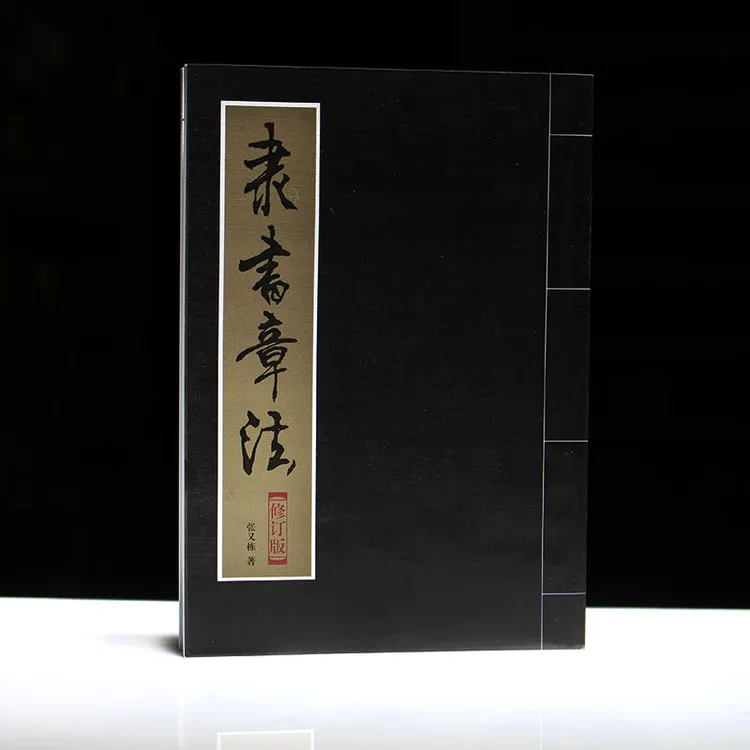 隶书章法
【修订版】
张又栋 著